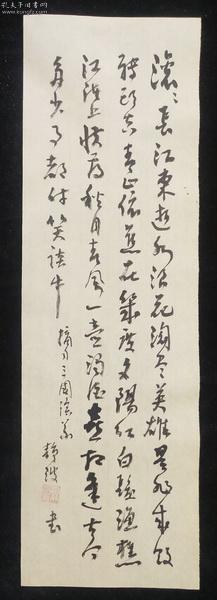 滚々长江东逝水浪花淘尽英雄是非成败
转头空青山依旧在几度夕阳红白发渔樵
江渚上惯看秋月春风一壶浊酒喜相逢古今
多少事都付笑谈中
摘自三国演义
书
孔夫子旧书网